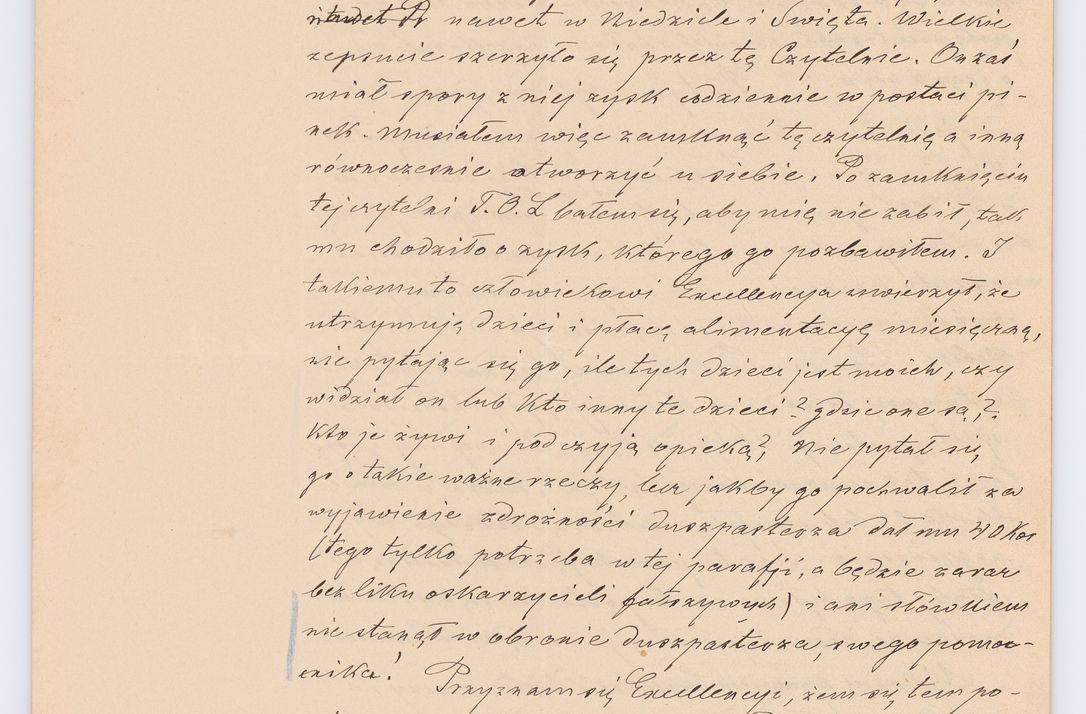 nawet w Niedziele i Święta. Wielkie
zepsucie szerzyło się przez tę Czytelnie. On zaś
miał spory z niej zysk codziennie w postaci pi-
nek. Musiałem więc zamknąć tę czytelnię a inną
równocześnie otworzyć u siebie. Po zamknięciu
tej czytelni T.O.L bałem się, aby mię nie zabił, tak
mu chodziło o zysk, którego go pozbawiłem. I
takiemu to człowiekowi Excellencya uwierzył, że
utrzymują dzieci i płacę alimentacyę miesięczną,
nie pytając się go, ile tych dzieci jest moich, czy
widział on lub kto inny te dzieci? gdzie one są?
kto je żywi i pod czyją opieką? Nie pytał się
go o takie ważne rzeczy, lecz jakby go pochwalił za
wyjawienie zdrożności duszpasterza dał mu 40 Kor
(tego tylko potrzeba w tej parafji, a będzie zaraz
bez liku oskarzycieli fałszywych) i ani słówkiem
nie stanął w obronie duszpasterza, swego pomoc-
nika! Przyznam się Excellencyi, żem się tem po-